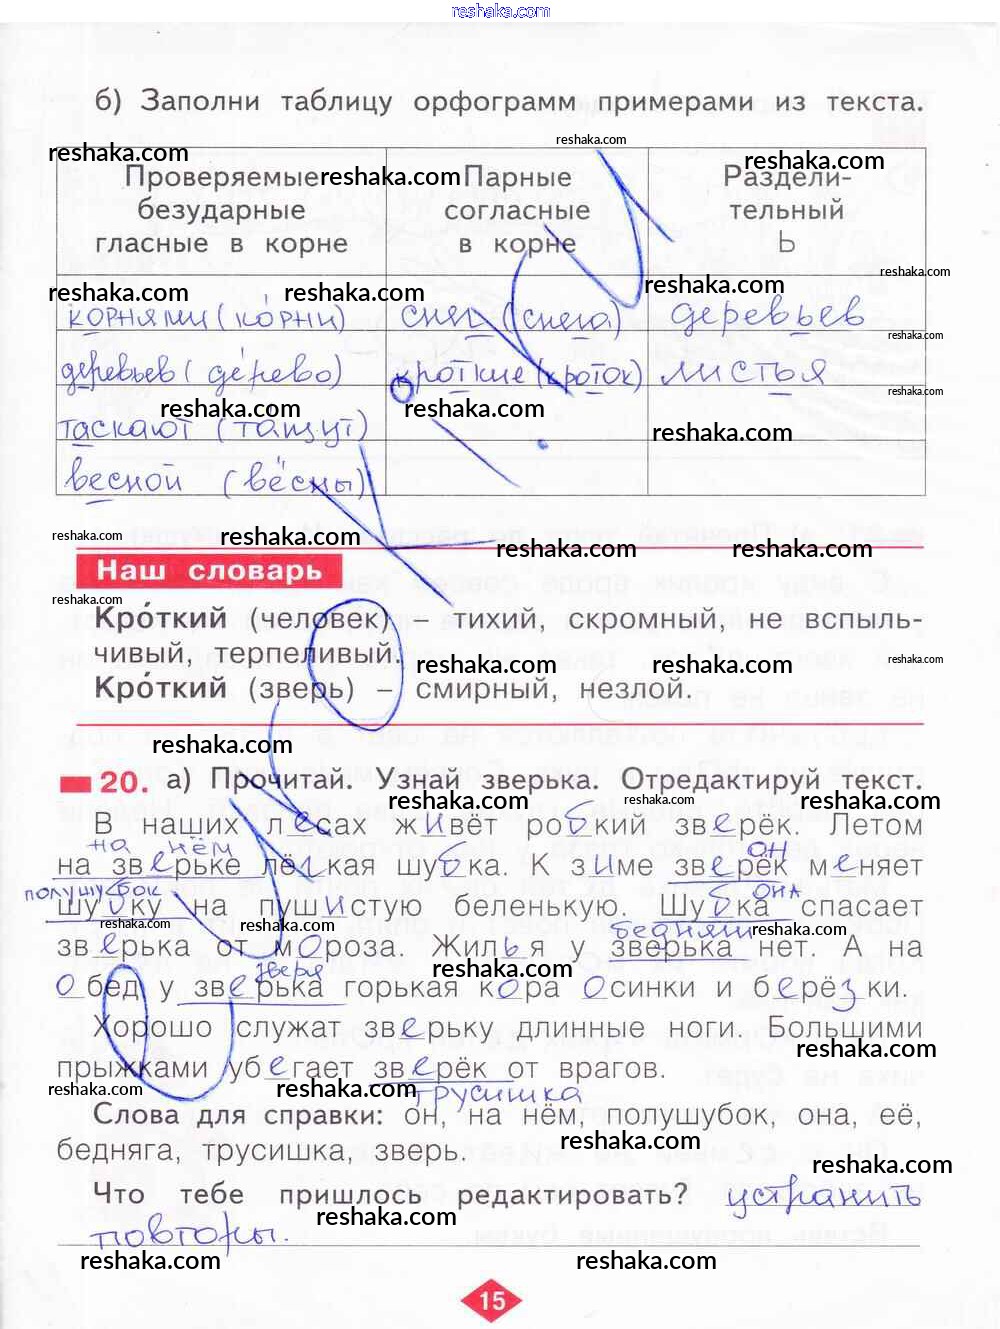 reshaka.com
б) Заполни таблицу орфограмм примерами из текста.
Проверяемые безударные гласные в корне
Парные согласные в корне
Раздели-тельный Ь
корнями (ко́рни) снег (снега) деревьев
деревьев (де́рево) кроткие (кроток) листья
таскают (та́щут)
весной (вёсны)
Наш словарь
Кро́ткий (человек) – тихий, скромный, не вспыль-
чивый, терпеливый.
Кро́ткий (зверь) – смирный, незлой.
20. а) Прочитай. Узнай зверька. Отредактируй текст.
В наших лесах живёт робкий зверёк. Летом
на нём он
на зверьке лёгкая шубка. К зиме зверёк меняет
полушубок она
шубку на пушистую беленькую. Шубка спасает
бедняги
зверька от мороза. Жилья у зверька нет. А на
зверя
обед у зверька горькая кора осинки и берёзки.
Хорошо служат зверьку длинные ноги. Большими
прыжками убегает зверёк от врагов.
трусишка
Слова для справки: он, на нём, полушубок, она, её,
бедняга, трусишка, зверь.
Что тебе пришлось редактировать? устранить
повторы.
15